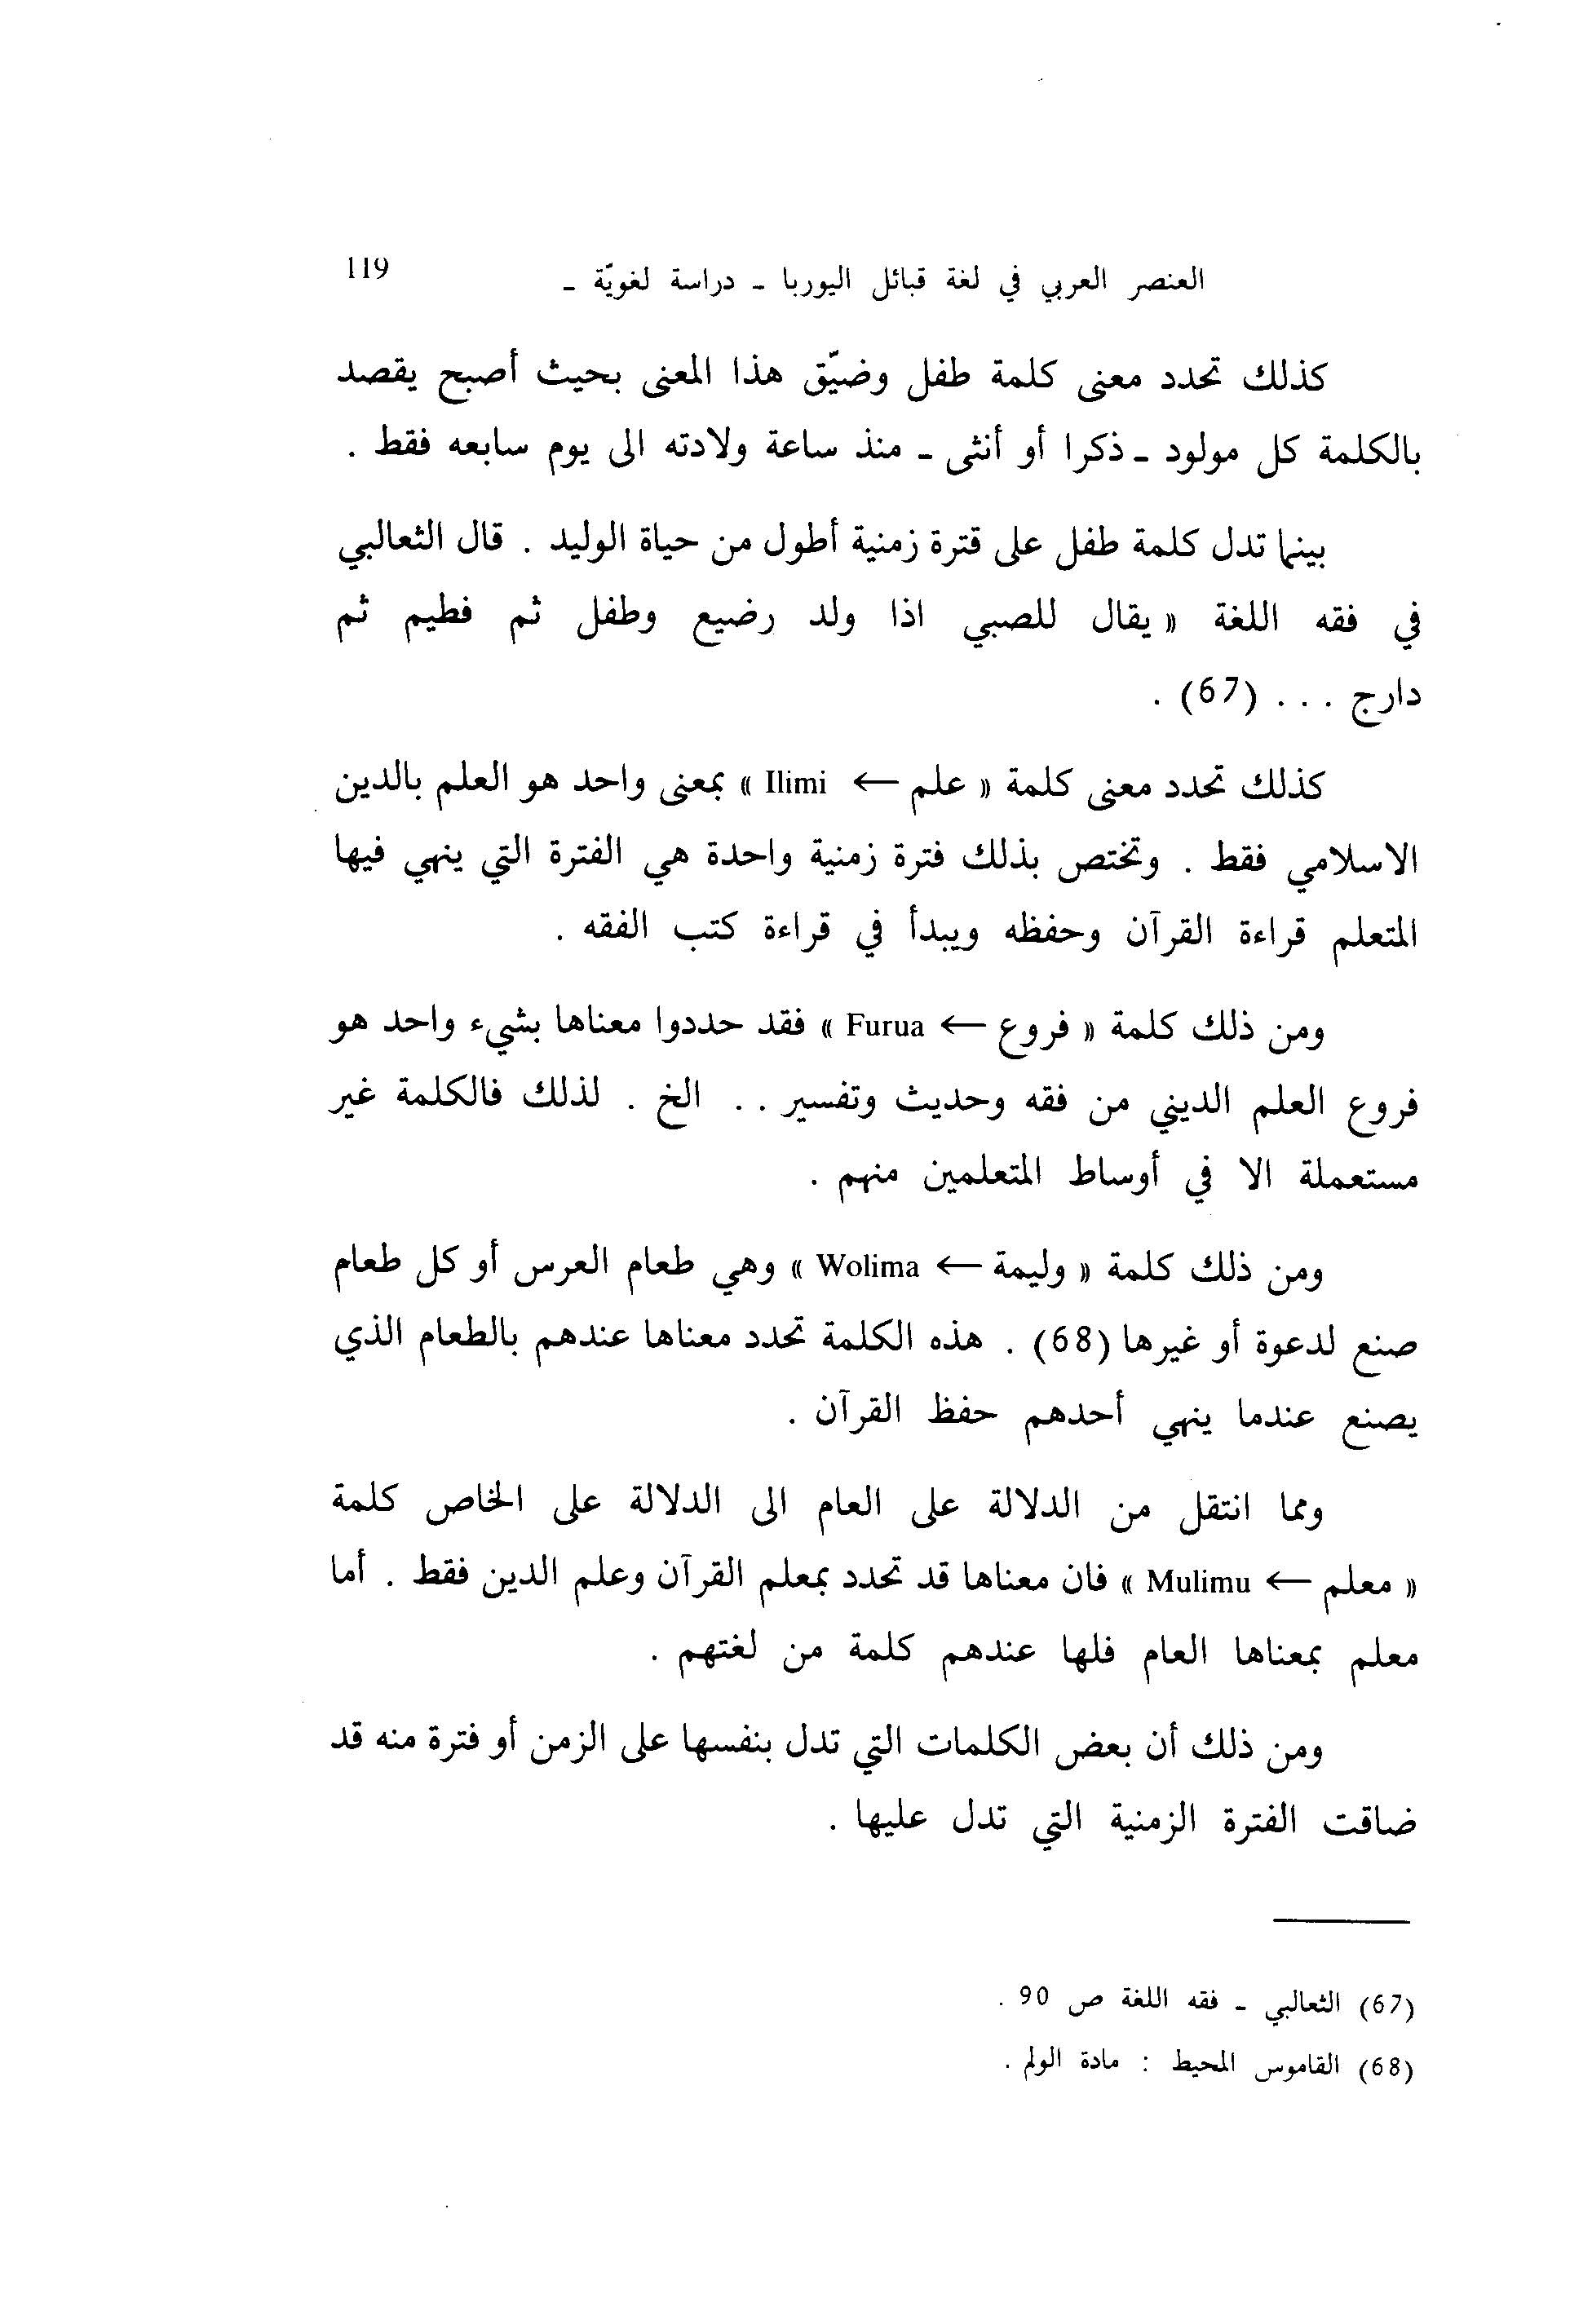 العنصر العربي في لغة قبائل اليوربا - دراسة لغويّة - 119
كذلك تحدد معنى كلمة طفل وضيّق هذا المعنى بحيث أصبح يقصد
بالكلمة كل مولود - ذكرا أو أنثى - منذ ساعة ولادته الى يوم سابعه فقط .
بينما تدل كلمة طفل على قترة زمنية أطول من حياة الوليد . قال الثعالبي
في فقه اللغة « يقال للصبي اذا ولد رضيع وطفل ثم فطيم ثم
دارج ... (67) .
كذلك تحدد معنى كلمة « علم ← Ilimi » بمعنى واحد هو العلم بالدين
الاسلامي فقط . وتختص بذلك فترة زمنية واحدة هي الفترة التي ينهي فيها
المتعلم قراءة القرآن وحفظه ويبدأ في قراءة كتب الفقه .
ومن ذلك كلمة « فروع ← Furua » فقد حددوا معناها بشيء واحد هو
فروع العلم الديني من فقه وحديث وتفسير . . الخ . لذلك فالكلمة غير
مستعملة الا في أوساط المتعلمين منهم .
ومن ذلك كلمة « وليمة ← Wolima » وهي طعام العرس أو كل طعام
صنع لدعوة أو غيرها (68) . هذه الكلمة تحدد معناها عندهم بالطعام الذي
يصنع عندما ينهي أحدهم حفظ القرآن .
ومما انتقل من الدلالة على العام الى الدلالة على الخاص كلمة
« معلم ← Mulimu » فان معناها قد تحدد بمعلم القرآن وعلم الدين فقط . أما
معلم بمعناها العام فلها عندهم كلمة من لغتهم .
ومن ذلك أن بعض الكلمات التي تدل بنفسها على الزمن أو فترة منه قد
ضاقت الفترة الزمنية التي تدل عليها .
(67) الثعالبي - فقه اللغة ص 90 .
(68) القاموس المحيط : مادة الولم .